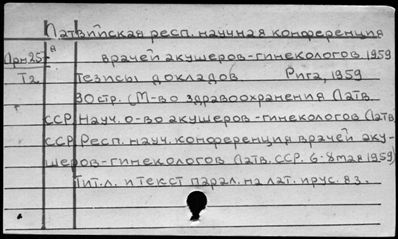 Латвийская респ. научная конференция
врачей акушеров-гинекологов. 1959
Прн25 А
Т2 Тезисы докладов. Рига, 1959
30стр. (М-во здравоохранения Латв.
ССР. Науч. о-во акушеров-гинекологов Латв.
ССР. Респ. науч. конференция врачей аку-
шеров-гинекологов Латв. ССР. 6-8 мая 1959)
Тит.л. и текст парал. на лат. и рус. яз.